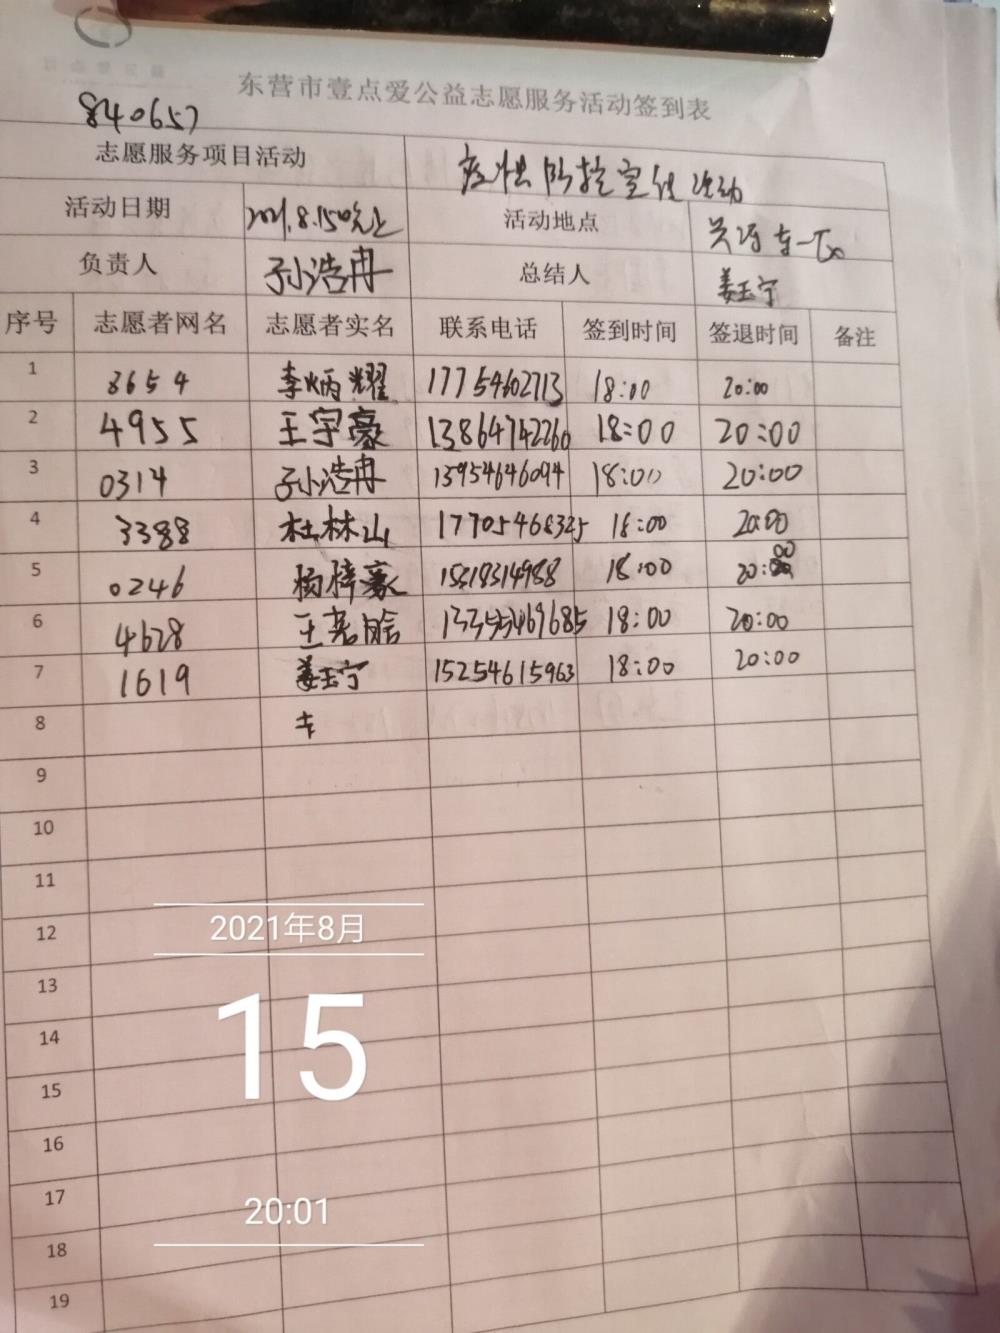 东营市壹点爱公益志愿服务活动签到表
840657
志愿服务项目活动 疫情防控宣传活动
活动日期 2021.8.15 晚上 活动地点
负责人 孙浩冉 总结人 姜玉宁
序号 志愿者网名 志愿者实名 联系电话 签到时间 签退时间 备注
1 8654 李炳耀 17754602713 18:00 20:00
2 4955 王宇豪 13864742260 18:00 20:00
3 0314 孙浩冉 13954646094 18:00 20:00
4 3388 杜林山 17705468325 18:00 20:00
5 0246 杨梓豪 18:00 20:00
6 4628 18:00 20:00
7 1619 姜玉宁 15254615963 18:00 20:00
8
9
10
11
12
13
14
15
16
17
18
19
2021年8月
15
20:01